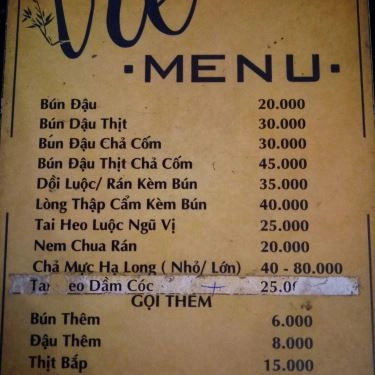 MENU
Bún Đậu 20.000
Bún Dậu Thịt 30.000
Bún Đậu Chả Cốm 30.000
Bún Đậu Thịt Chả Cốm 45.000
Dồi Luộc/ Rán Kèm Bún 35.000
Lòng Thập Cẩm Kèm Bún 40.000
Tai Heo Luộc Ngũ Vị 25.000
Nem Chua Rán 20.000
Chả Mực Hạ Long ( Nhỏ/ Lớn) 40 - 80.000
Dầm Cóc
GỌI THÊM
Bún Thêm 6.000
Đậu Thêm 8.000
Thịt Bắp 15.000